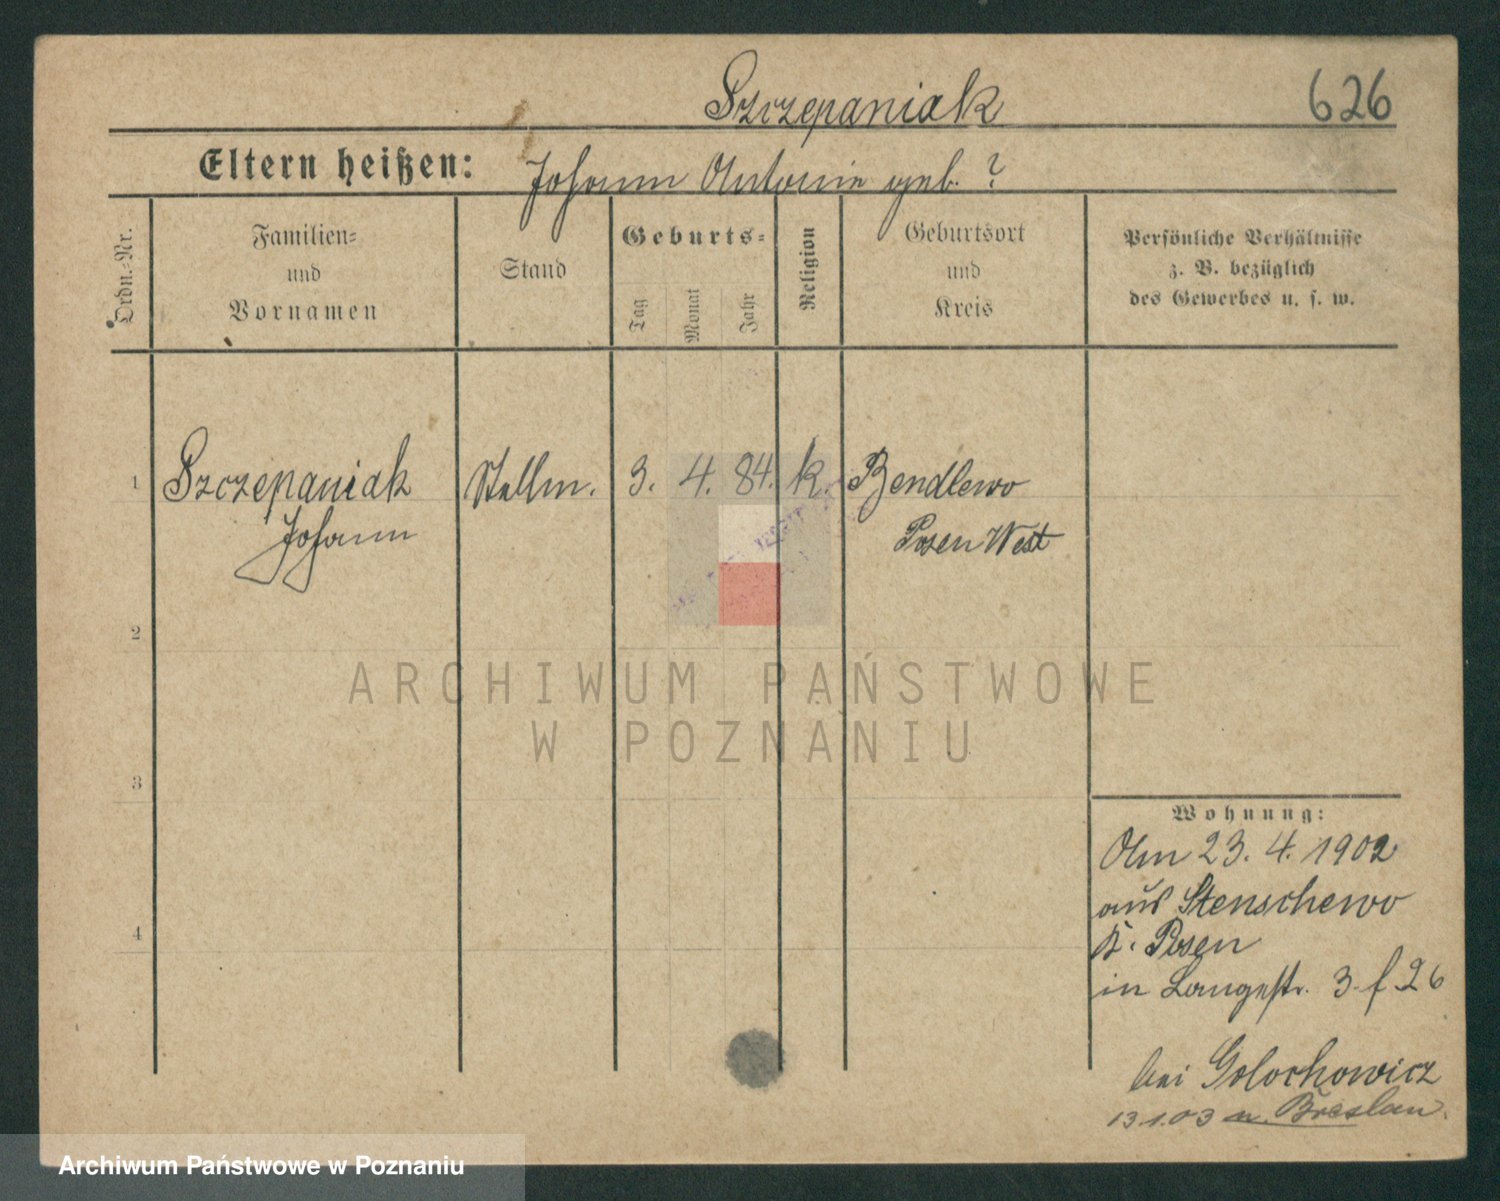 Szczepaniak
626
Eltern heißen: Johann Antonie geb. ?
Ordn.-Nr.
Familien- und Vornamen
Stand
Geburts-
Tag
Monat
Jahr
Religion
Geburtsort und Kreis
Persönliche Verhältnisse
z. B. bezüglich
des Gewerbes u. s. w.
1 Szczepaniak Stellm. 3. 4. 84. k. Bendlewo
Johann Posen West
2
ARCHIWUM PAŃSTWOWE
W POZNANIU
3
Wohnung:
Am 23. 4. 1902
aus Stenschewo
4
K. Posen
in Langestr. 3. f 26
bei Golochowicz
13.1.03 n. Breslau.
Archiwum Państwowe w Poznaniu